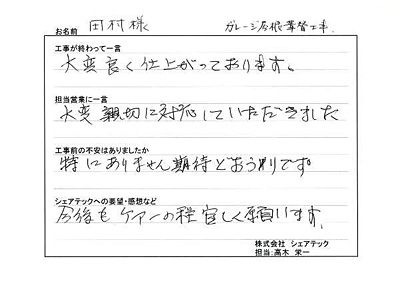 お名前 田村様 ガレージ屋根葺替工事
工事が終わって一言
大変良く仕上がっております。
担当営業に一言
大変親切に対応していただきました
工事前の不安はありましたか
特にありません期待どおうりです。
シェアテックへの要望・感想など
今後もケアーの程宜しく願います。
株式会社 シェアテック
担当:高木 栄一